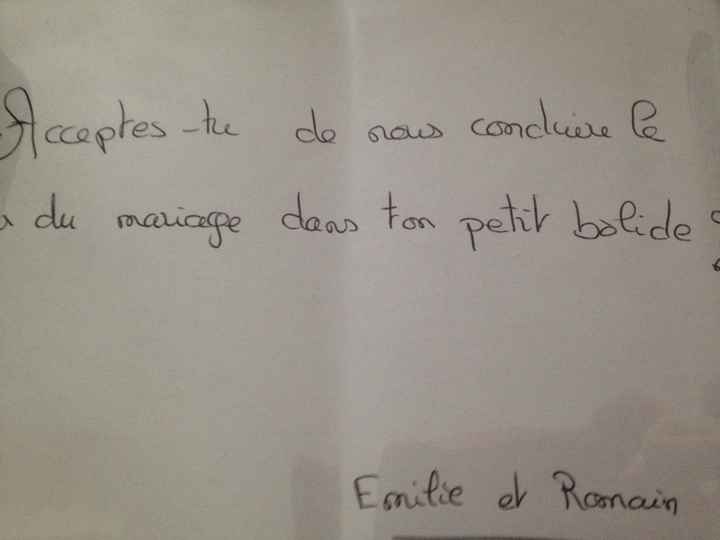 Acceptes-tu de nous conduire le
du mariage dans ton petit bolide ?
Emilie et Romain